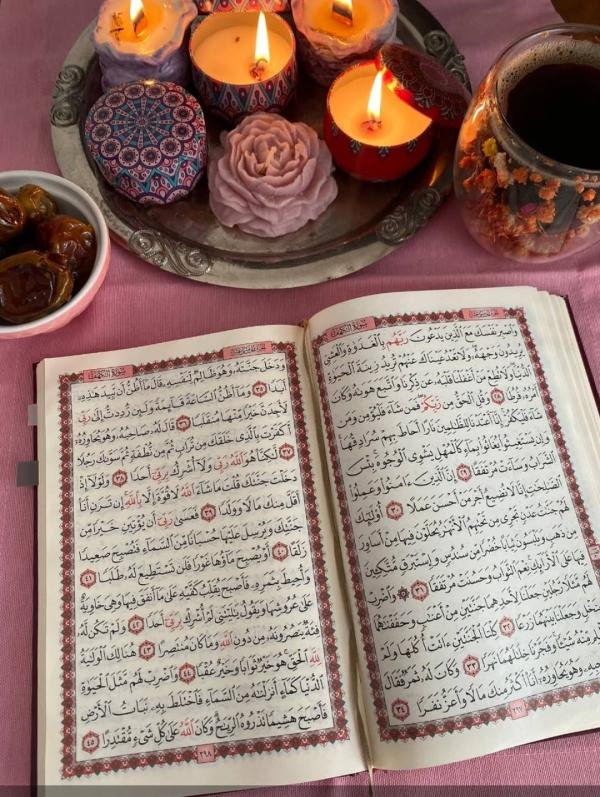 سُورَةُ الكَهْفِ الجُزْءُ الخَامِسَ عَشَرَ
وَٱصْبِرْ نَفْسَكَ مَعَ ٱلَّذِينَ يَدْعُونَ رَبَّهُم بِٱلْغَدَوٰةِ وَٱلْعَشِيِّ
يُرِيدُونَ وَجْهَهُۥ وَلَا تَعْدُ عَيْنَاكَ عَنْهُمْ تُرِيدُ زِينَةَ ٱلْحَيَوٰةِ
ٱلدُّنْيَا وَلَا تُطِعْ مَنْ أَغْفَلْنَا قَلْبَهُۥ عَن ذِكْرِنَا وَٱتَّبَعَ هَوَىٰهُ وَكَانَ
أَمْرُهُۥ فُرُطًا ٢٨ وَقُلِ ٱلْحَقُّ مِن رَّبِّكُمْ فَمَن شَآءَ فَلْيُؤْمِن وَمَن
شَآءَ فَلْيَكْفُرْ إِنَّآ أَعْتَدْنَا لِلظَّٰلِمِينَ نَارًا أَحَاطَ بِهِمْ سُرَادِقُهَا
وَإِن يَسْتَغِيثُوا۟ يُغَاثُوا۟ بِمَآءٍ كَٱلْمُهْلِ يَشْوِي ٱلْوُجُوهَ بِئْسَ
ٱلشَّرَابُ وَسَآءَتْ مُرْتَفَقًا ٢٩ إِنَّ ٱلَّذِينَ ءَامَنُوا۟ وَعَمِلُوا۟
ٱلصَّٰلِحَٰتِ إِنَّا لَا نُضِيعُ أَجْرَ مَنْ أَحْسَنَ عَمَلًا ٣٠ أُو۟لَٰٓئِكَ
لَهُمْ جَنَّٰتُ عَدْنٍ تَجْرِي مِن تَحْتِهِمُ ٱلْأَنْهَٰرُ يُحَلَّوْنَ فِيهَا مِنْ أَسَاوِرَ
مِن ذَهَبٍ وَيَلْبَسُونَ ثِيَابًا خُضْرًا مِّن سُندُسٍ وَإِسْتَبْرَقٍ مُّتَّكِـِٔينَ
فِيهَا عَلَى ٱلْأَرَآئِكِ نِعْمَ ٱلثَّوَابُ وَحَسُنَتْ مُرْتَفَقًا ٣١ وَٱضْرِبْ
لَهُم مَّثَلًا رَّجُلَيْنِ جَعَلْنَا لِأَحَدِهِمَا جَنَّتَيْنِ مِنْ أَعْنَٰبٍ وَحَفَفْنَٰهُمَا
بِنَخْلٍ وَجَعَلْنَا بَيْنَهُمَا زَرْعًا ٣٢ كِلْتَا ٱلْجَنَّتَيْنِ ءَاتَتْ أُكُلَهَا وَلَمْ
تَظْلِم مِّنْهُ شَيْـًٔا وَفَجَّرْنَا خِلَٰلَهُمَا نَهَرًا ٣٣ وَكَانَ لَهُۥ ثَمَرٌ فَقَالَ
لِصَٰحِبِهِۦ وَهُوَ يُحَاوِرُهُۥٓ أَنَا۠ أَكْثَرُ مِنكَ مَالًا وَأَعَزُّ نَفَرًا ٣٤
٢٩٧
الجُزْءُ الخَامِسَ عَشَرَ سُورَةُ الكَهْفِ
وَدَخَلَ جَنَّتَهُۥ وَهُوَ ظَالِمٌ لِّنَفْسِهِۦ قَالَ مَآ أَظُنُّ أَن تَبِيدَ هَٰذِهِۦٓ
أَبَدًا ٣٥ وَمَآ أَظُنُّ ٱلسَّاعَةَ قَآئِمَةً وَلَئِن رُّدِدتُّ إِلَىٰ رَبِّي
لَأَجِدَنَّ خَيْرًا مِّنْهَا مُنقَلَبًا ٣٦ قَالَ لَهُۥ صَاحِبُهُۥ وَهُوَ يُحَاوِرُهُۥٓ
أَكَفَرْتَ بِٱلَّذِي خَلَقَكَ مِن تُرَابٍ ثُمَّ مِن نُّطْفَةٍ ثُمَّ سَوَّىٰكَ رَجُلًا
٣٧ لَّٰكِنَّا۠ هُوَ ٱللَّهُ رَبِّي وَلَآ أُشْرِكُ بِرَبِّيٓ أَحَدًا ٣٨ وَلَوْلَآ إِذْ
دَخَلْتَ جَنَّتَكَ قُلْتَ مَا شَآءَ ٱللَّهُ لَا قُوَّةَ إِلَّا بِٱللَّهِ إِن تَرَنِ أَنَا۠
أَقَلَّ مِنكَ مَالًا وَوَلَدًا ٣٩ فَعَسَىٰ رَبِّيٓ أَن يُؤْتِيَنِ خَيْرًا مِّن
جَنَّتِكَ وَيُرْسِلَ عَلَيْهَا حُسْبَانًا مِّنَ ٱلسَّمَآءِ فَتُصْبِحَ صَعِيدًا
زَلَقًا ٤٠ أَوْ يُصْبِحَ مَآؤُهَا غَوْرًا فَلَن تَسْتَطِيعَ لَهُۥ طَلَبًا ٤١
وَأُحِيطَ بِثَمَرِهِۦ فَأَصْبَحَ يُقَلِّبُ كَفَّيْهِ عَلَىٰ مَآ أَنفَقَ فِيهَا وَهِيَ خَاوِيَةٌ
عَلَىٰ عُرُوشِهَا وَيَقُولُ يَٰلَيْتَنِي لَمْ أُشْرِكْ بِرَبِّيٓ أَحَدًا ٤٢ وَلَمْ تَكُن لَّهُۥ
فِئَةٌ يَنصُرُونَهُۥ مِن دُونِ ٱللَّهِ وَمَا كَانَ مُنتَصِرًا ٤٣ هُنَالِكَ ٱلْوَلَٰيَةُ
لِلَّهِ ٱلْحَقِّ هُوَ خَيْرٌ ثَوَابًا وَخَيْرٌ عُقْبًا ٤٤ وَٱضْرِبْ لَهُم مَّثَلَ ٱلْحَيَوٰةِ
ٱلدُّنْيَا كَمَآءٍ أَنزَلْنَٰهُ مِنَ ٱلسَّمَآءِ فَٱخْتَلَطَ بِهِۦ نَبَاتُ ٱلْأَرْضِ
فَأَصْبَحَ هَشِيمًا تَذْرُوهُ ٱلرِّيَٰحُ وَكَانَ ٱللَّهُ عَلَىٰ كُلِّ شَيْءٍ مُّقْتَدِرًا ٤٥
٢٩٨